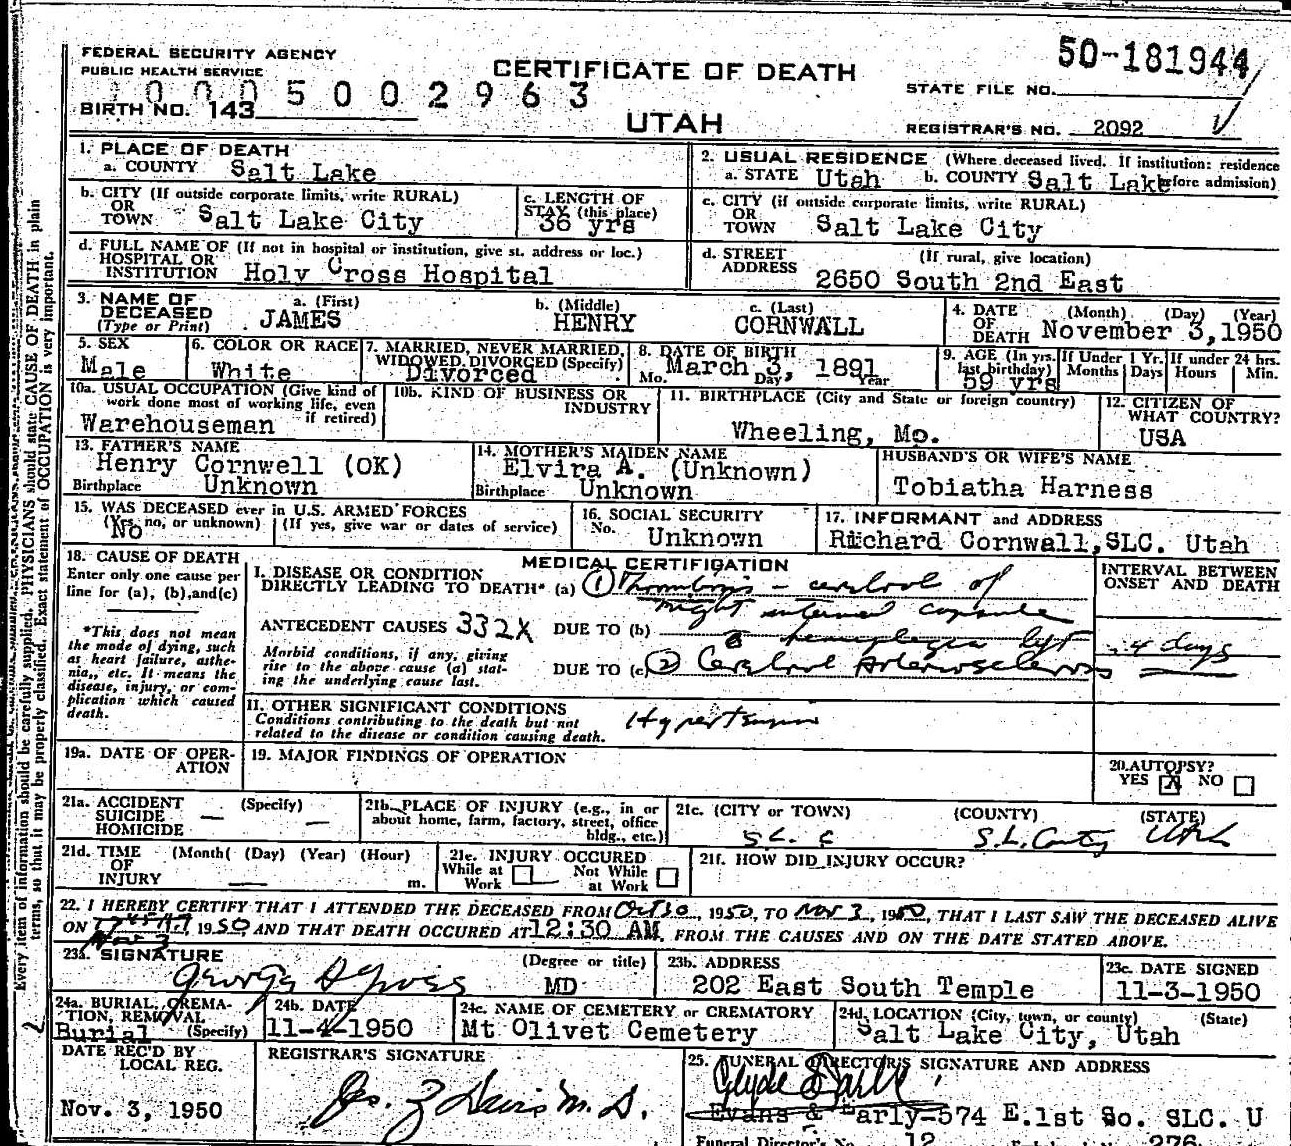 FEDERAL SECURITY AGENCY
PUBLIC HEALTH SERVICE
CERTIFICATE OF DEATH
UTAH
50-181944
STATE FILE NO.
0005002963
BIRTH NO. 143
REGISTRAR'S NO. 2092
Every item of information should be carefully supplied. PHYSICIANS should state CAUSE OF DEATH in plain
terms, so that it may be properly classified. Exact statement of OCCUPATION is very important.
1. PLACE OF DEATH
a. COUNTY Salt Lake
2. USUAL RESIDENCE (Where deceased lived. If institution: residence
a. STATE Utah b. COUNTY Salt Lake before admission)
b. CITY (If outside corporate limits, write RURAL)
OR
TOWN Salt Lake City
c. LENGTH OF
STAY (this place)
36 yrs
c. CITY (if outside corporate limits, write RURAL)
OR
TOWN Salt Lake City
d. FULL NAME OF (If not in hospital or institution, give st. address or loc.)
HOSPITAL OR
INSTITUTION Holy Cross Hospital
d. STREET (If rural, give location)
ADDRESS 2650 South 2nd East
3. NAME OF
DECEASED
(Type or Print)
a. (First)
JAMES
b. (Middle)
HENRY
c. (Last)
CORNWALL
4. DATE (Month) (Day) (Year)
OF
DEATH November 3, 1950
5. SEX
Male
6. COLOR OR RACE
White
7. MARRIED, NEVER MARRIED,
WIDOWED, DIVORCED (Specify)
Divorced
8. DATE OF BIRTH
March 3, 1891
Mo. Day Year
9. AGE (In yrs.
last birthday)
59 yrs
If Under 1 Yr.
Months Days
If under 24 hrs.
Hours Min.
10a. USUAL OCCUPATION (Give kind of
work done most of working life, even
if retired)
Warehouseman
10b. KIND OF BUSINESS OR
INDUSTRY
11. BIRTHPLACE (City and State or foreign country)
Wheeling, Mo.
12. CITIZEN OF
WHAT COUNTRY?
USA
13. FATHER'S NAME
Henry Cornwell (OK)
Birthplace Unknown
14. MOTHER'S MAIDEN NAME
Elvira A. (Unknown)
Birthplace Unknown
HUSBAND'S OR WIFE'S NAME
Tobiatha Harness
15. WAS DECEASED ever in U.S. ARMED FORCES
(Yes, no, or unknown) (If yes, give war or dates of service)
No
16. SOCIAL SECURITY
No. Unknown
17. INFORMANT and ADDRESS
Richard Cornwall, SLC. Utah
18. CAUSE OF DEATH
Enter only one cause per
line for (a), (b), and (c)
*This does not mean
the mode of dying, such
as heart failure, asthe-
nia, etc. It means the
disease, injury, or com-
plication which caused
death.
MEDICAL CERTIFICATION
I. DISEASE OR CONDITION
DIRECTLY LEADING TO DEATH* (a) (1) Thrombosis - cerebral of
right internal capsule
ANTECEDENT CAUSES 332X DUE TO (b)
c hemiplegia left
Morbid conditions, if any, giving
rise to the above cause (a) stat-
ing the underlying cause last.
DUE TO (c) (2) Cerebral Arteriosclerosis
INTERVAL BETWEEN
ONSET AND DEATH
4 days
II. OTHER SIGNIFICANT CONDITIONS
Conditions contributing to the death but not
related to the disease or condition causing death.
Hypertension
19a. DATE OF OPER-
ATION
19. MAJOR FINDINGS OF OPERATION
20. AUTOPSY?
YES X NO
21a. ACCIDENT (Specify)
SUICIDE
HOMICIDE
21b. PLACE OF INJURY (e.g., in or
about home, farm, factory, street, office
bldg., etc.)
21c. (CITY or TOWN) (COUNTY) (STATE)
S L C S. L. County Utah
21d. TIME (Month) (Day) (Year) (Hour)
OF
INJURY m.
21e. INJURY OCCURED
While at Work
Not While at Work
21f. HOW DID INJURY OCCUR?
22. I HEREBY CERTIFY THAT I ATTENDED THE DECEASED FROM Oct 30, 1950, TO Nov 3, 1950, THAT I LAST SAW THE DECEASED ALIVE
ON Nov 3, 1950, AND THAT DEATH OCCURED AT 12:30 AM, FROM THE CAUSES AND ON THE DATE STATED ABOVE.
23a. SIGNATURE (Degree or title)
George MD
23b. ADDRESS
202 East South Temple
23c. DATE SIGNED
11-3-1950
24a. BURIAL, CREMA-
TION, REMOVAL
Burial (Specify)
24b. DATE
11-4-1950
24c. NAME OF CEMETERY or CREMATORY
Mt Olivet Cemetery
24d. LOCATION (City, town, or county) (State)
Salt Lake City, Utah
DATE REC'D BY
LOCAL REG.
Nov. 3, 1950
REGISTRAR'S SIGNATURE
M. D.
25. FUNERAL DIRECTOR'S SIGNATURE AND ADDRESS
Evans & Early-574 E.1st So. SLC. U
Funeral Director's No. 12
276